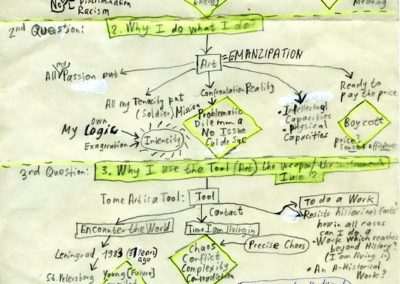 Discrimination
Racism
Energy
Meaning
2nd Question:
2. Why I do what I do?
Art = EMANZIPATION
my
All Passion put
All my Tenacity put
(Soldier) Mission
Confrontation Reality
Ready to
pay the price
own
My Logic
Exageration
Intensity
Problematic
Dilemma
No Issue
Cul de Sac
• Intellectual
Capacities
• Physical
Capacities
Boycott
Price
3rd Question:
3. Why I use the Tool (Art) the weapon/
I use?
To me Art is a Tool:
Tool
Contact
To do a Work
Encounter the World
Time I am living in
Precise Chaos
Resists historical facts
how in all cases
can I do a
-Work which reaches
beyond History?
(I am living in)
• An A-Historical
Work?
Leningrad
1983
ago
St. Petersburg
Young (Future)
Chaos
Conflict
Complexity
Contradiction